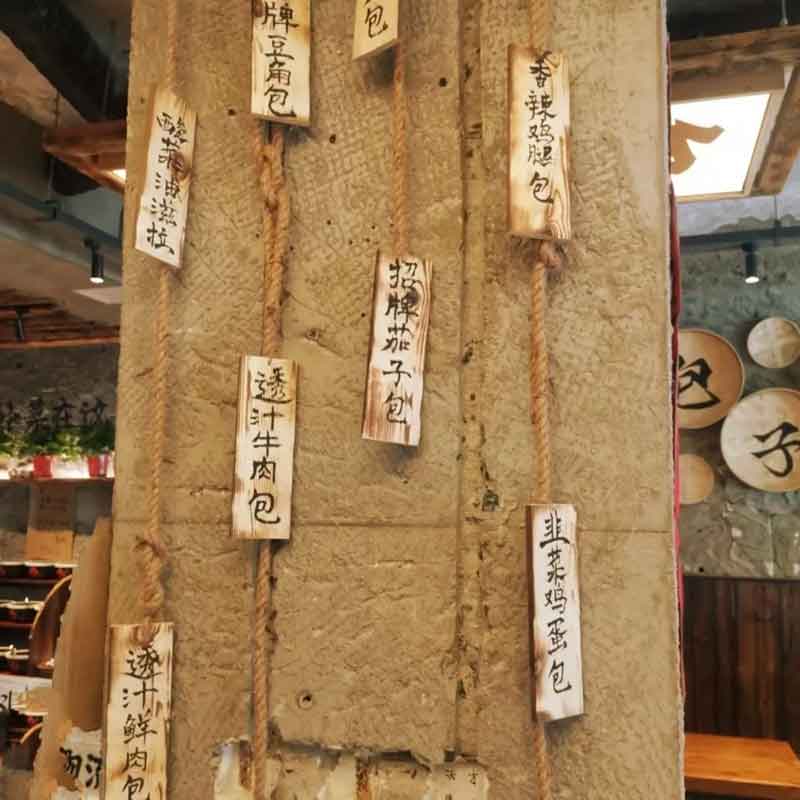 酸菜油滋拉
牌豆角包
包
香辣鸡腿包
招牌茄子包
透汁牛肉包
韭菜鸡蛋包
透汁鲜肉包
包
子